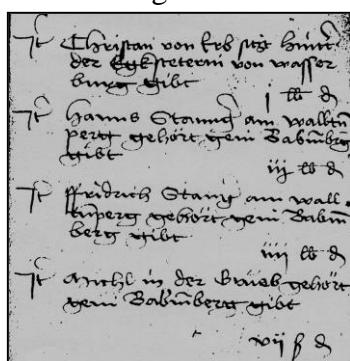 Christan von Erb sitzt hinter
der Egksteterin von wasser
burg gibt
j lb d
Hanns Stanng am
perg gehört gein Babmberg
gibt
iij lb d
ffridrich Stang am wall
perg gehört gein Babm
berg gibt
iiij lb d
Michl in der gehört
gein Babmberg gibt
vij ß d